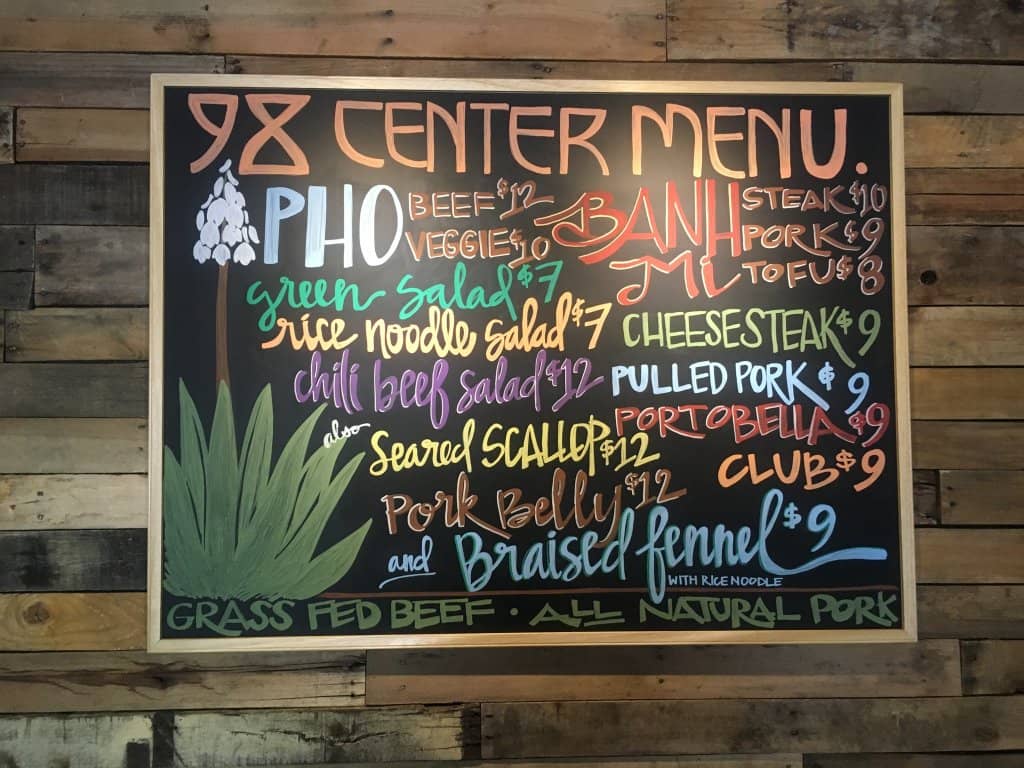 98 CENTER MENU.
PHO BEEF $12
VEGGIE $10
BANH Mi STEAK $10
PORK $9
TOFU $8
green salad $7
rice noodle salad $7
chili beef salad $12
CHEESESTEAK $9
PULLED PORK $9
PORTOBELLA $9
CLUB $9
also
Seared SCALLOP $12
Pork Belly $12
and Braised fennel $9
WITH RICE NOODLE
GRASS FED BEEF · ALL NATURAL PORK